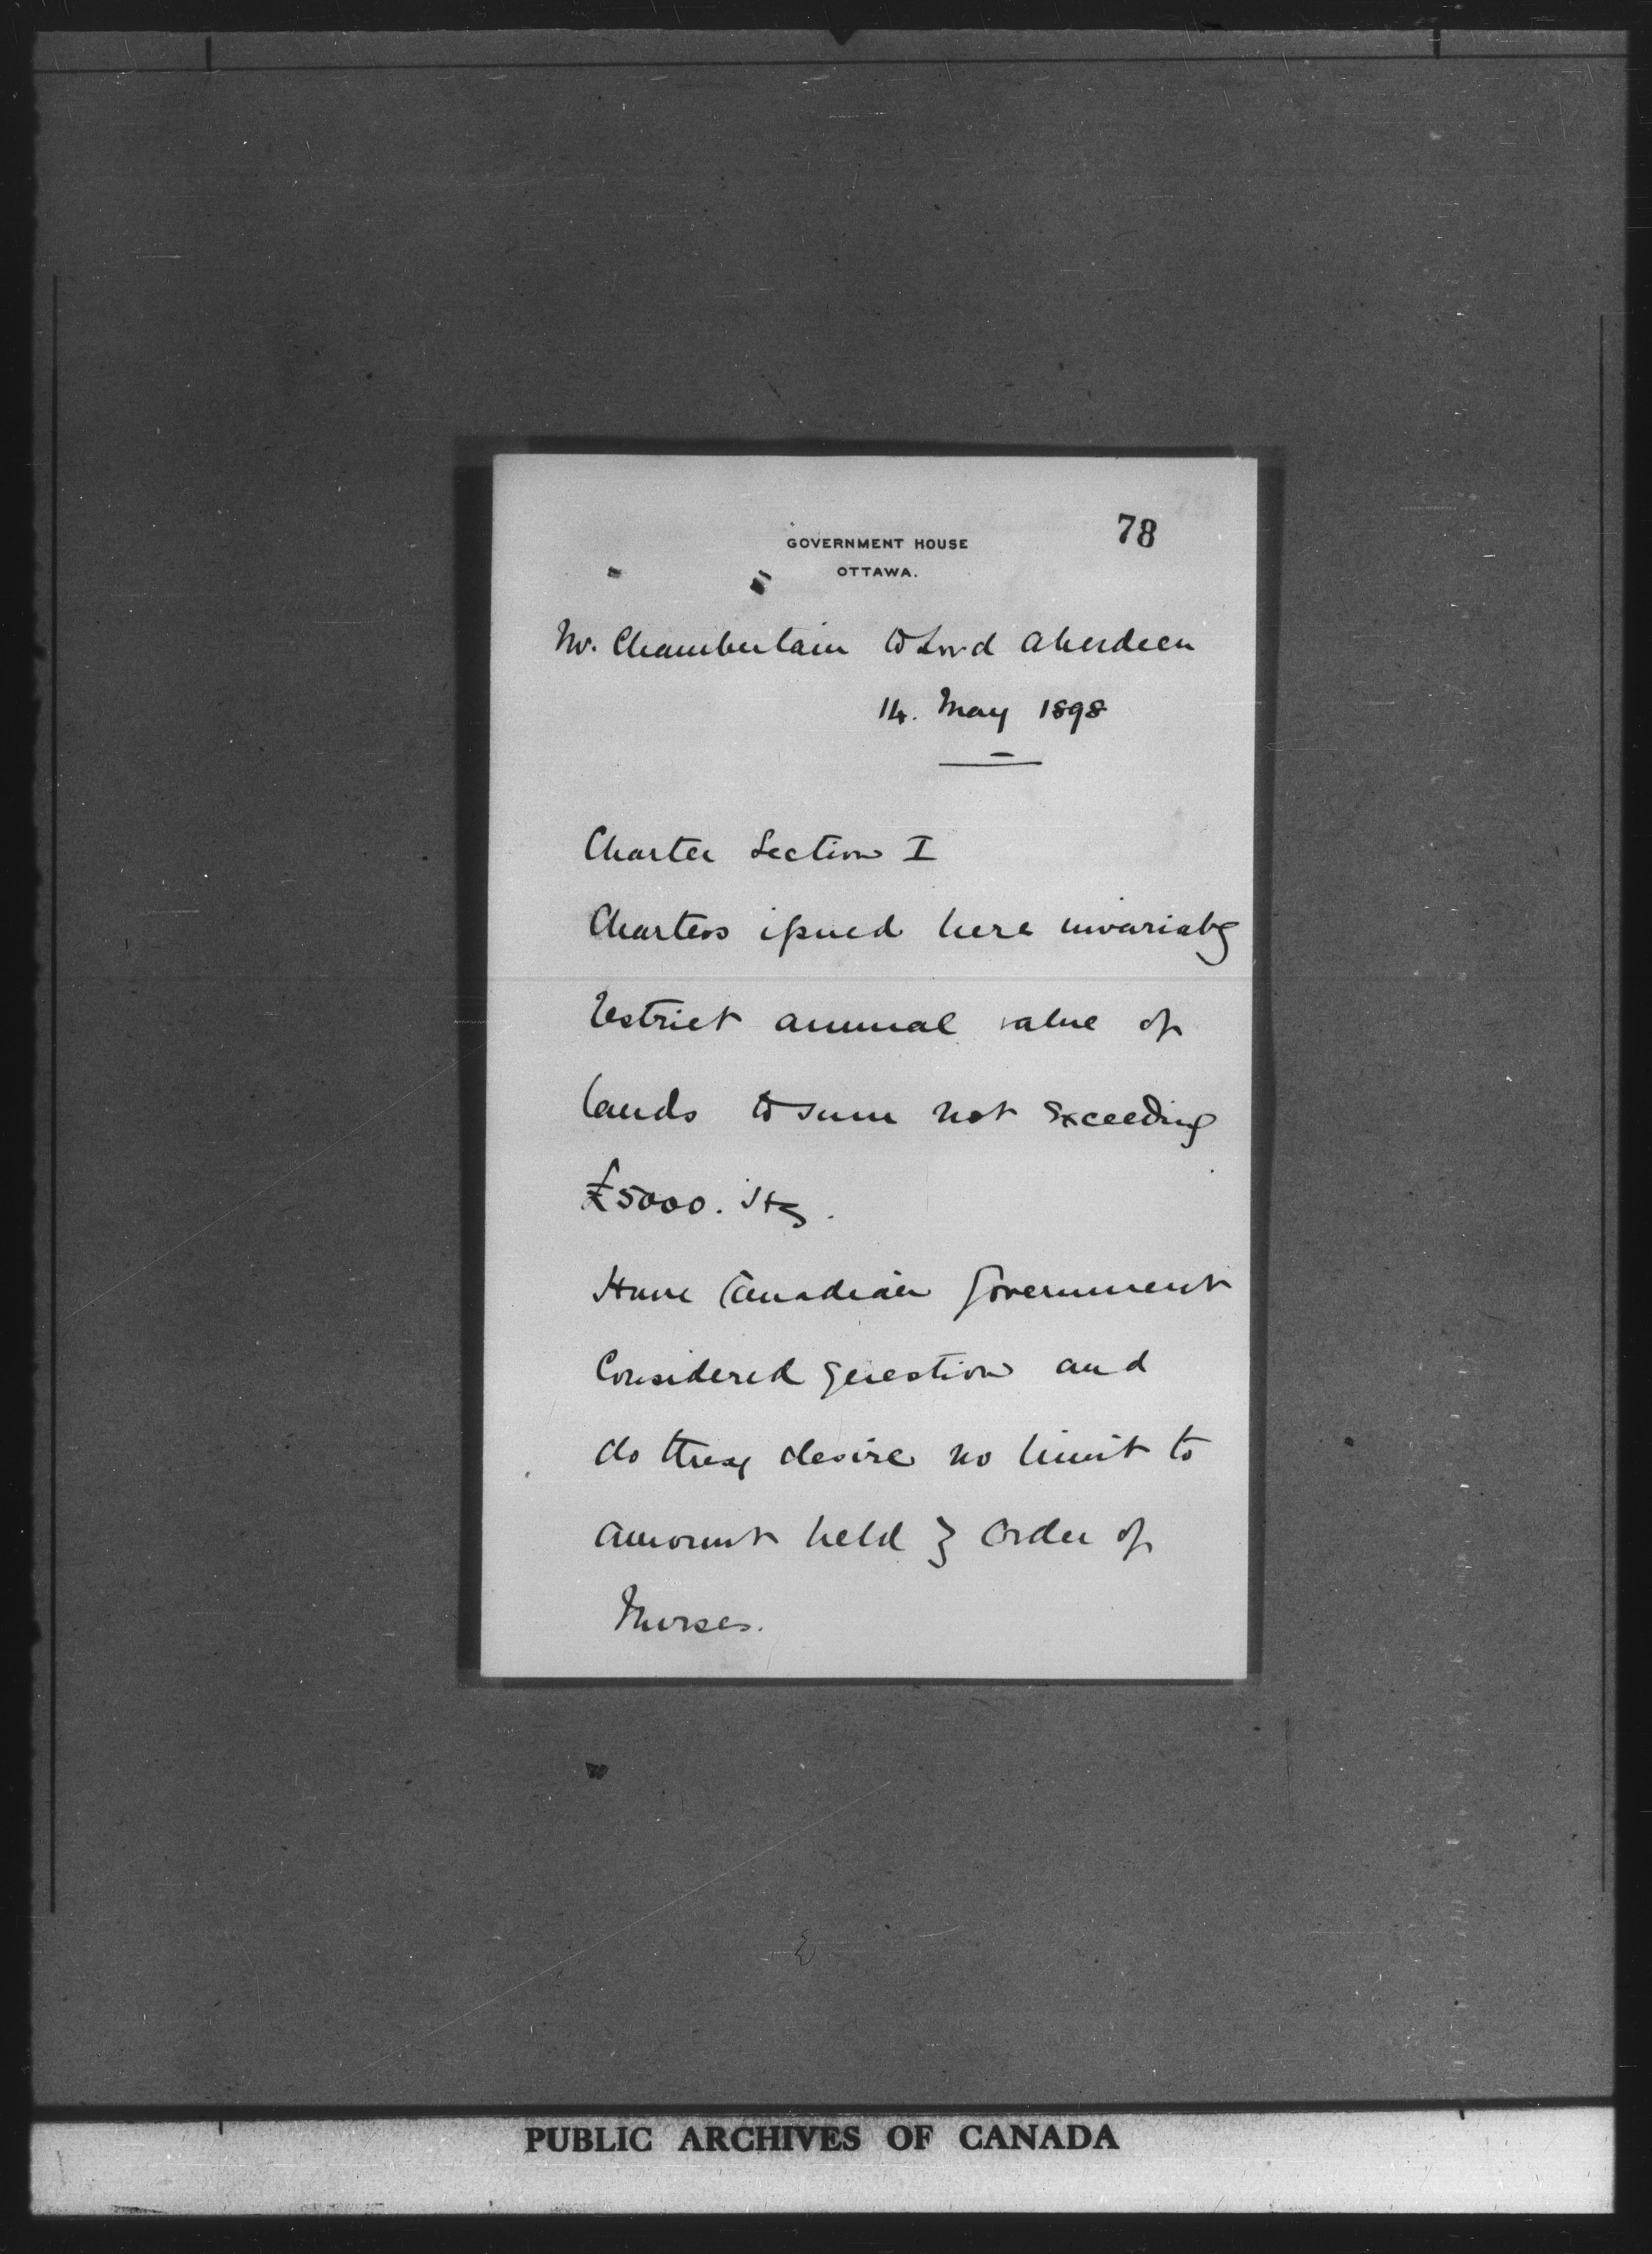 78
GOVERNMENT HOUSE
OTTAWA.
Mr. Chamberlain to Lord Aberdeen
14. May 1898
Charter Section I
Charters issued here invariably
restrict annual value of
lands to sum not exceeding
£5000. Stg.
Have Canadian Government
Considered question and
do they desire no limit to
amount held by Order of
Nurses.
PUBLIC ARCHIVES OF CANADA